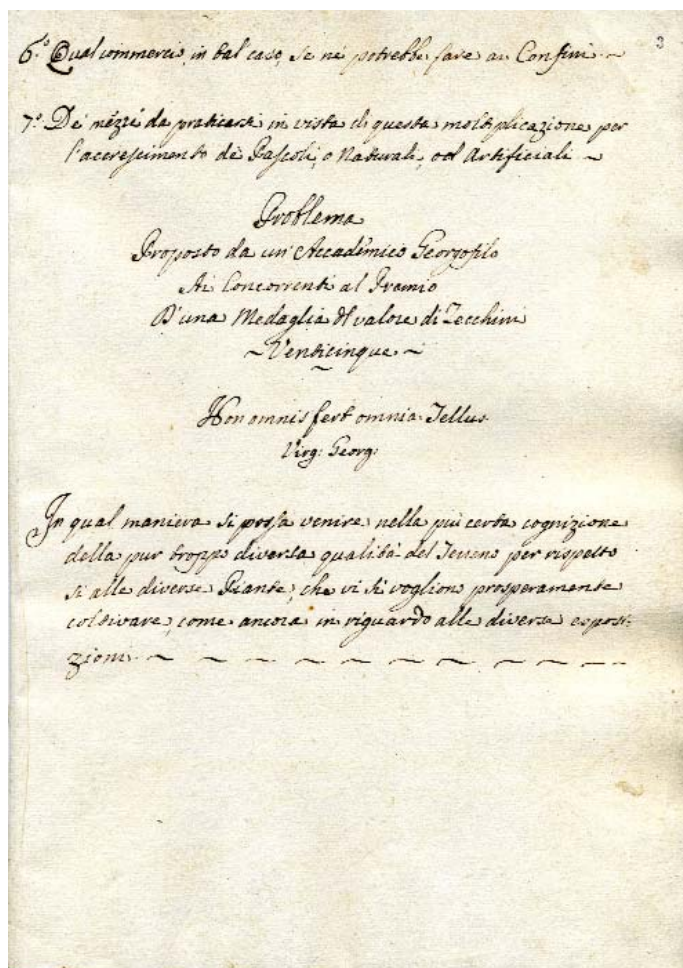 3
6.º Qual commercio, in tal caso, se ne potrebbe fare ai Confini ~
7.º De' mezzi da praticarsi in vista di questa moltiplicazione per
l'accrescimento de' Pascoli, o Naturali, od Artificiali ~
Problema
Proposto da un' Accademico Georgofilo
Ai Concorrenti al Premio
D'una Medaglia del valore di Zecchini
~ Venticinque ~
Non omnis fert omnia Tellus
Virg: Georg:
In qual maniera si possa venire nella più certa cognizione
della pur troppo diversa qualità del Terreno per rispetto
sì alle diverse Piante, che vi si vogliono prosperamente
coltivare, come ancora in riguardo alle diverse esposi:
zioni ~ ~ ~ ~ ~ ~ ~ ~ ~ ~